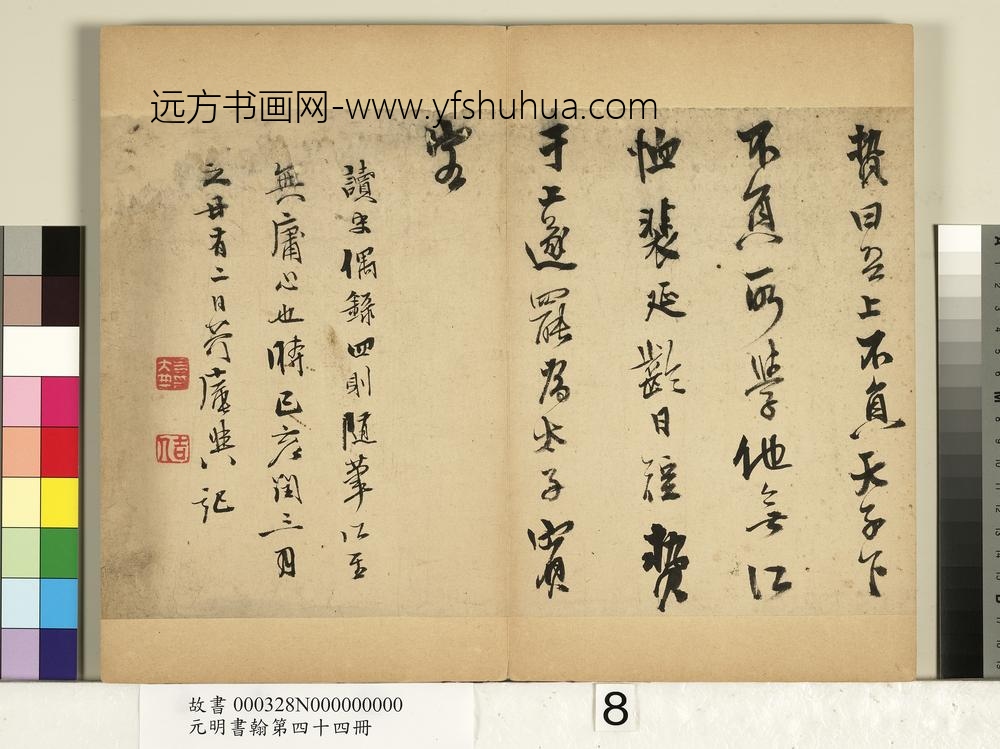 远方书画网-www.yfshuhua.com
贄曰吾上不負天子下
不負所學他無所
恤裴延齡日短贄
于上遂罷為太子賓
客
讀史偶錄四則隨筆以至
無庸心也時己亥閏三月
之廿有二日
記
故書 000328N000000000
元明書翰第四十四冊
8